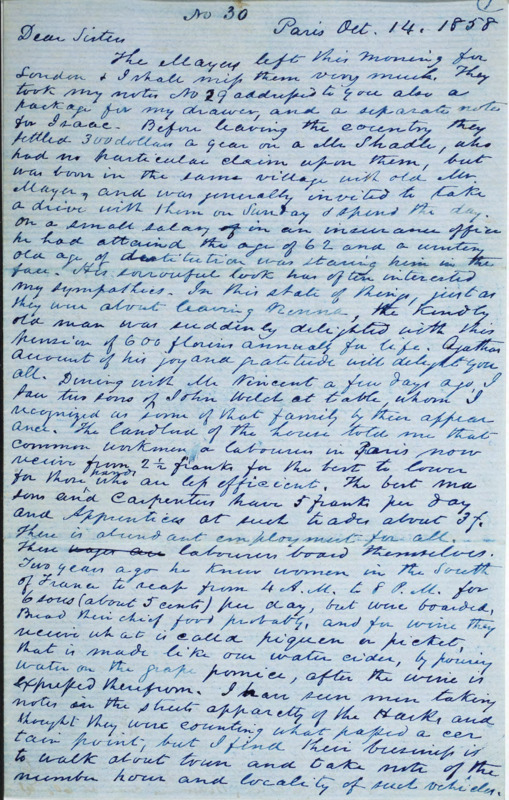 No 30
1
Paris Oct. 14. 1858
Dear Sisters
The Mayers left this morning for
London & I shall miss them very much. They
took my notes No 29 addressed to you also a
package for my drawer, and a separate note
for Isaac. Before leaving the country they
settled 300 dollars a year on a Mr Shadle, who
had no particular claim upon them, but
was born in the same village with old Mr
Mayer, and was generally invited to take
a drive with them on Sunday & spend the day.
on a small salary in an insurance office
he had attaind the age of 62 and a wintery
old age of destitution was staring him in the
face. His sorrowful look was often interested
my sympathies. In this state of things, just as
they were about leaving Vienna, the kindly
old man was suddenly delighted with this
pension of 600 florins annualy for life. Agathas
account of his joy and gratitude will delight you
all. Dining with Mr Vincent a few days ago, I
saw two sons of John Welch at table, whom I
recognized as some of that family by their appear
ance. The landlord of the house told me that
common workmen, a labourers in Paris now
receive from 2½ franks for the best to lower
for those who are less efficient. The best ma
sons and Carpenters have 5 franks per day
and Apprentices at such trades about 3 f.
There is abundant employment for all.
These wages are labourers board themselves.
Two years ago he knew women in the South
of France to reap from 4 A.M. to 8 P.M. for
6 sous (about 5 cents) per day, but were boarded,
Bread their chief food probably, and for wine they
receive what is called piquen or picket,
that is made like our water cider, by pouring
water on the grape pomice, after the wine is
expressed therefrom. I have seen men taking
notes on the streets apparetly of the Hacks and
thought they were counting what passed a cer
tain point, but I find their business is
to walk about town and take note of the
number hour and locality of such vehicles.